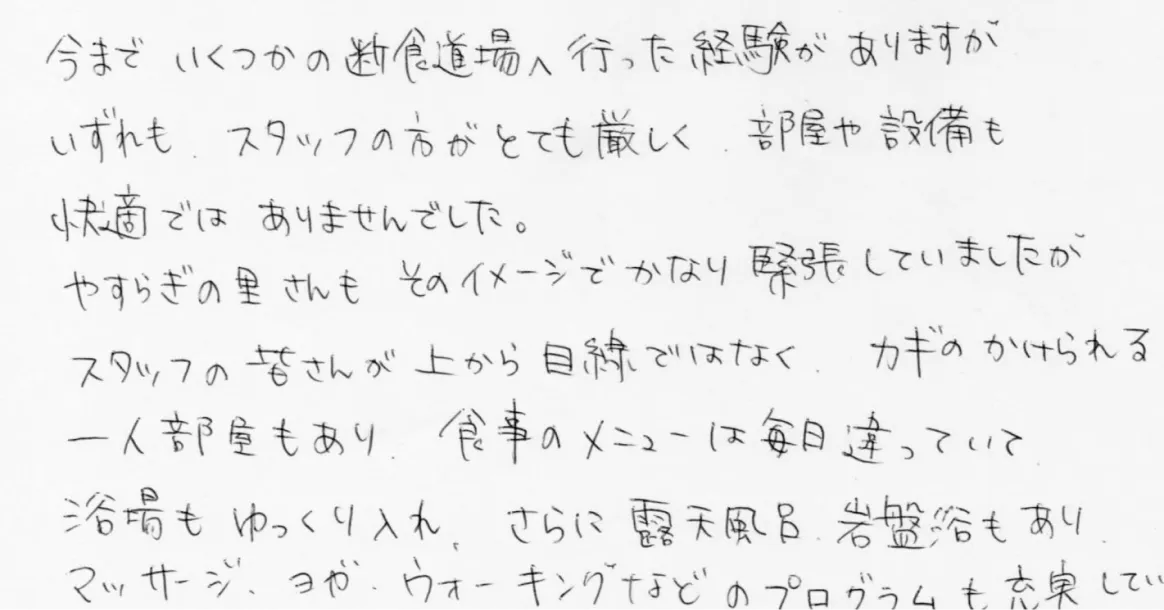 今まで いくつかの断食道場へ行った経験が ありますが
いずれも、スタッフの方がとても厳しく、部屋や設備も
快適では ありませんでした。
やすらぎの里さんも そのイメージでかなり緊張していましたが
スタッフの皆さんが上から目線ではなく、カギのかけられる
一人部屋もあり、食事のメニューは毎日違っていて
浴場もゆっくり入れ、さらに露天風呂、岩盤浴もあり、
マッサージ、ヨガ、ウォーキングなどのプログラムも充実してい